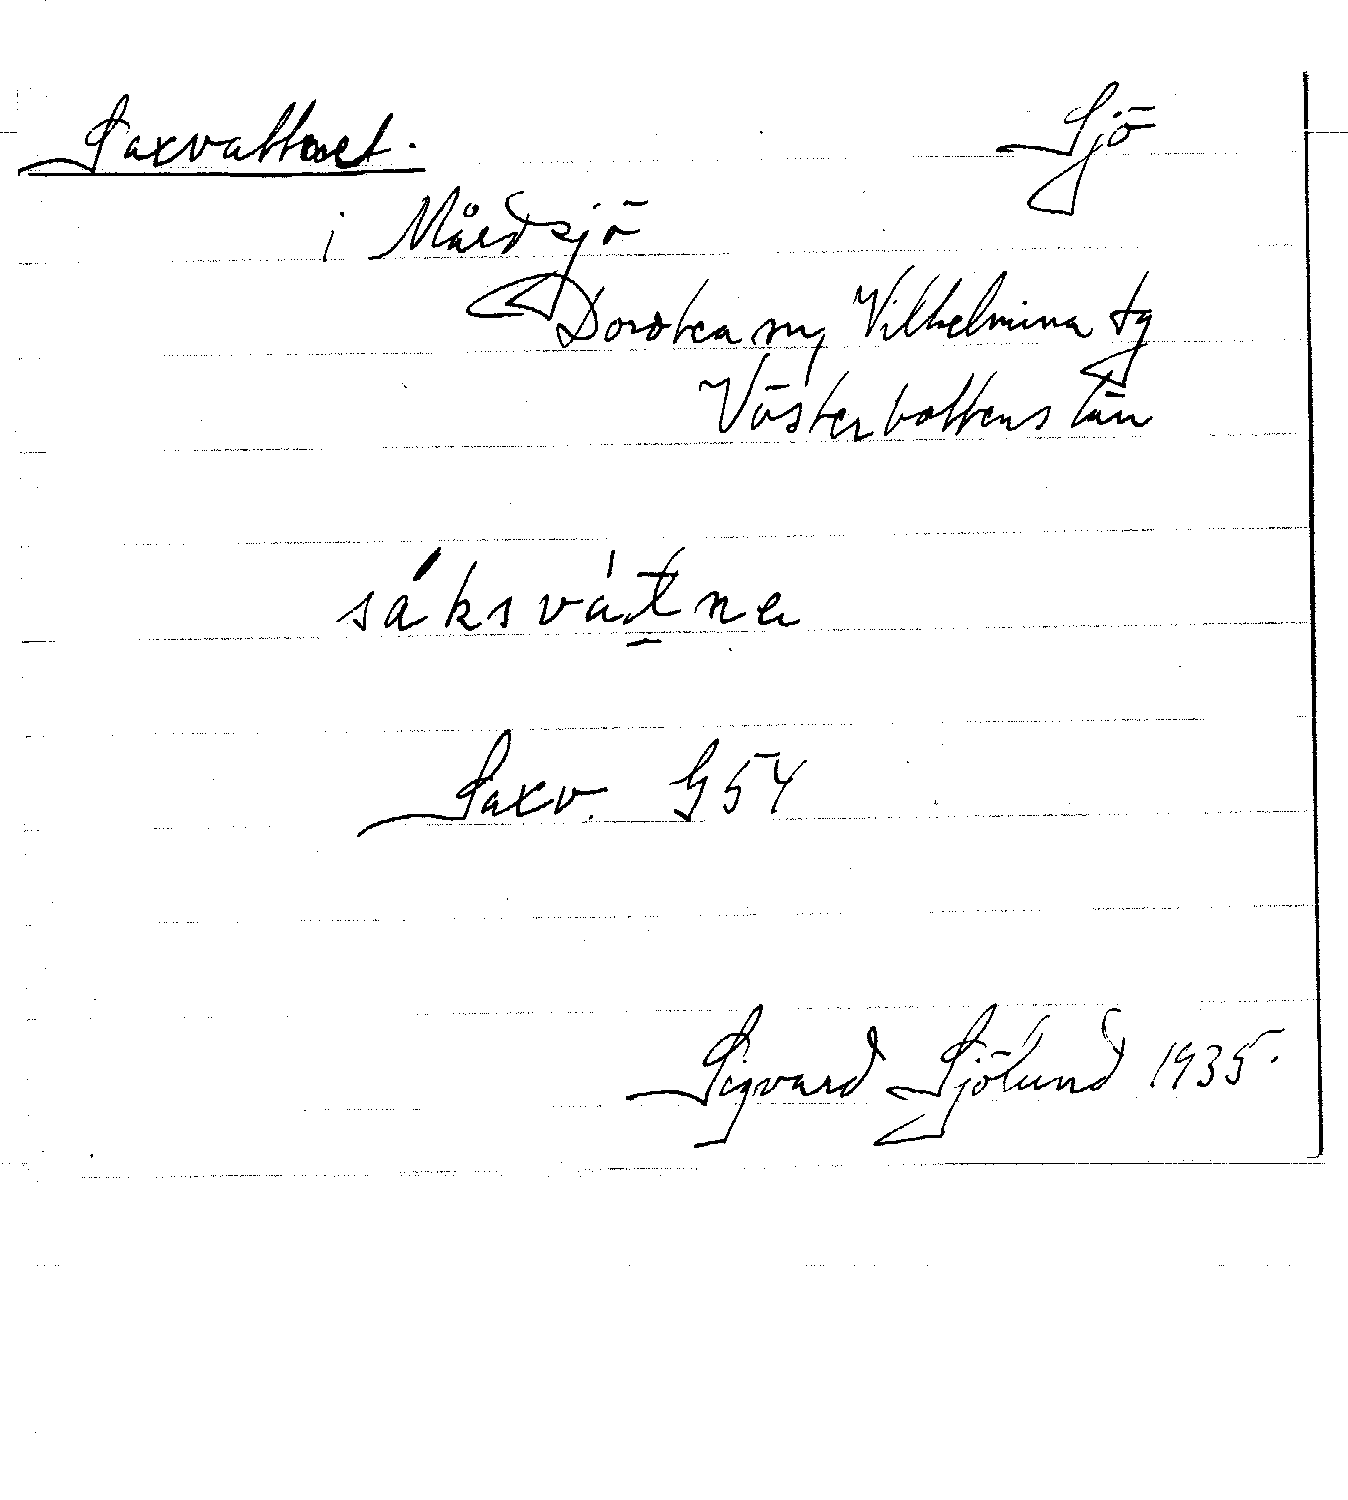 Saxvattnet. Sjö
i Mårdsjö
Dorotea sn, Vilhelmina tg
Västerbottens län
sáksvát̲ne
Saxv. G54
Sigvard Sjölund 1935.